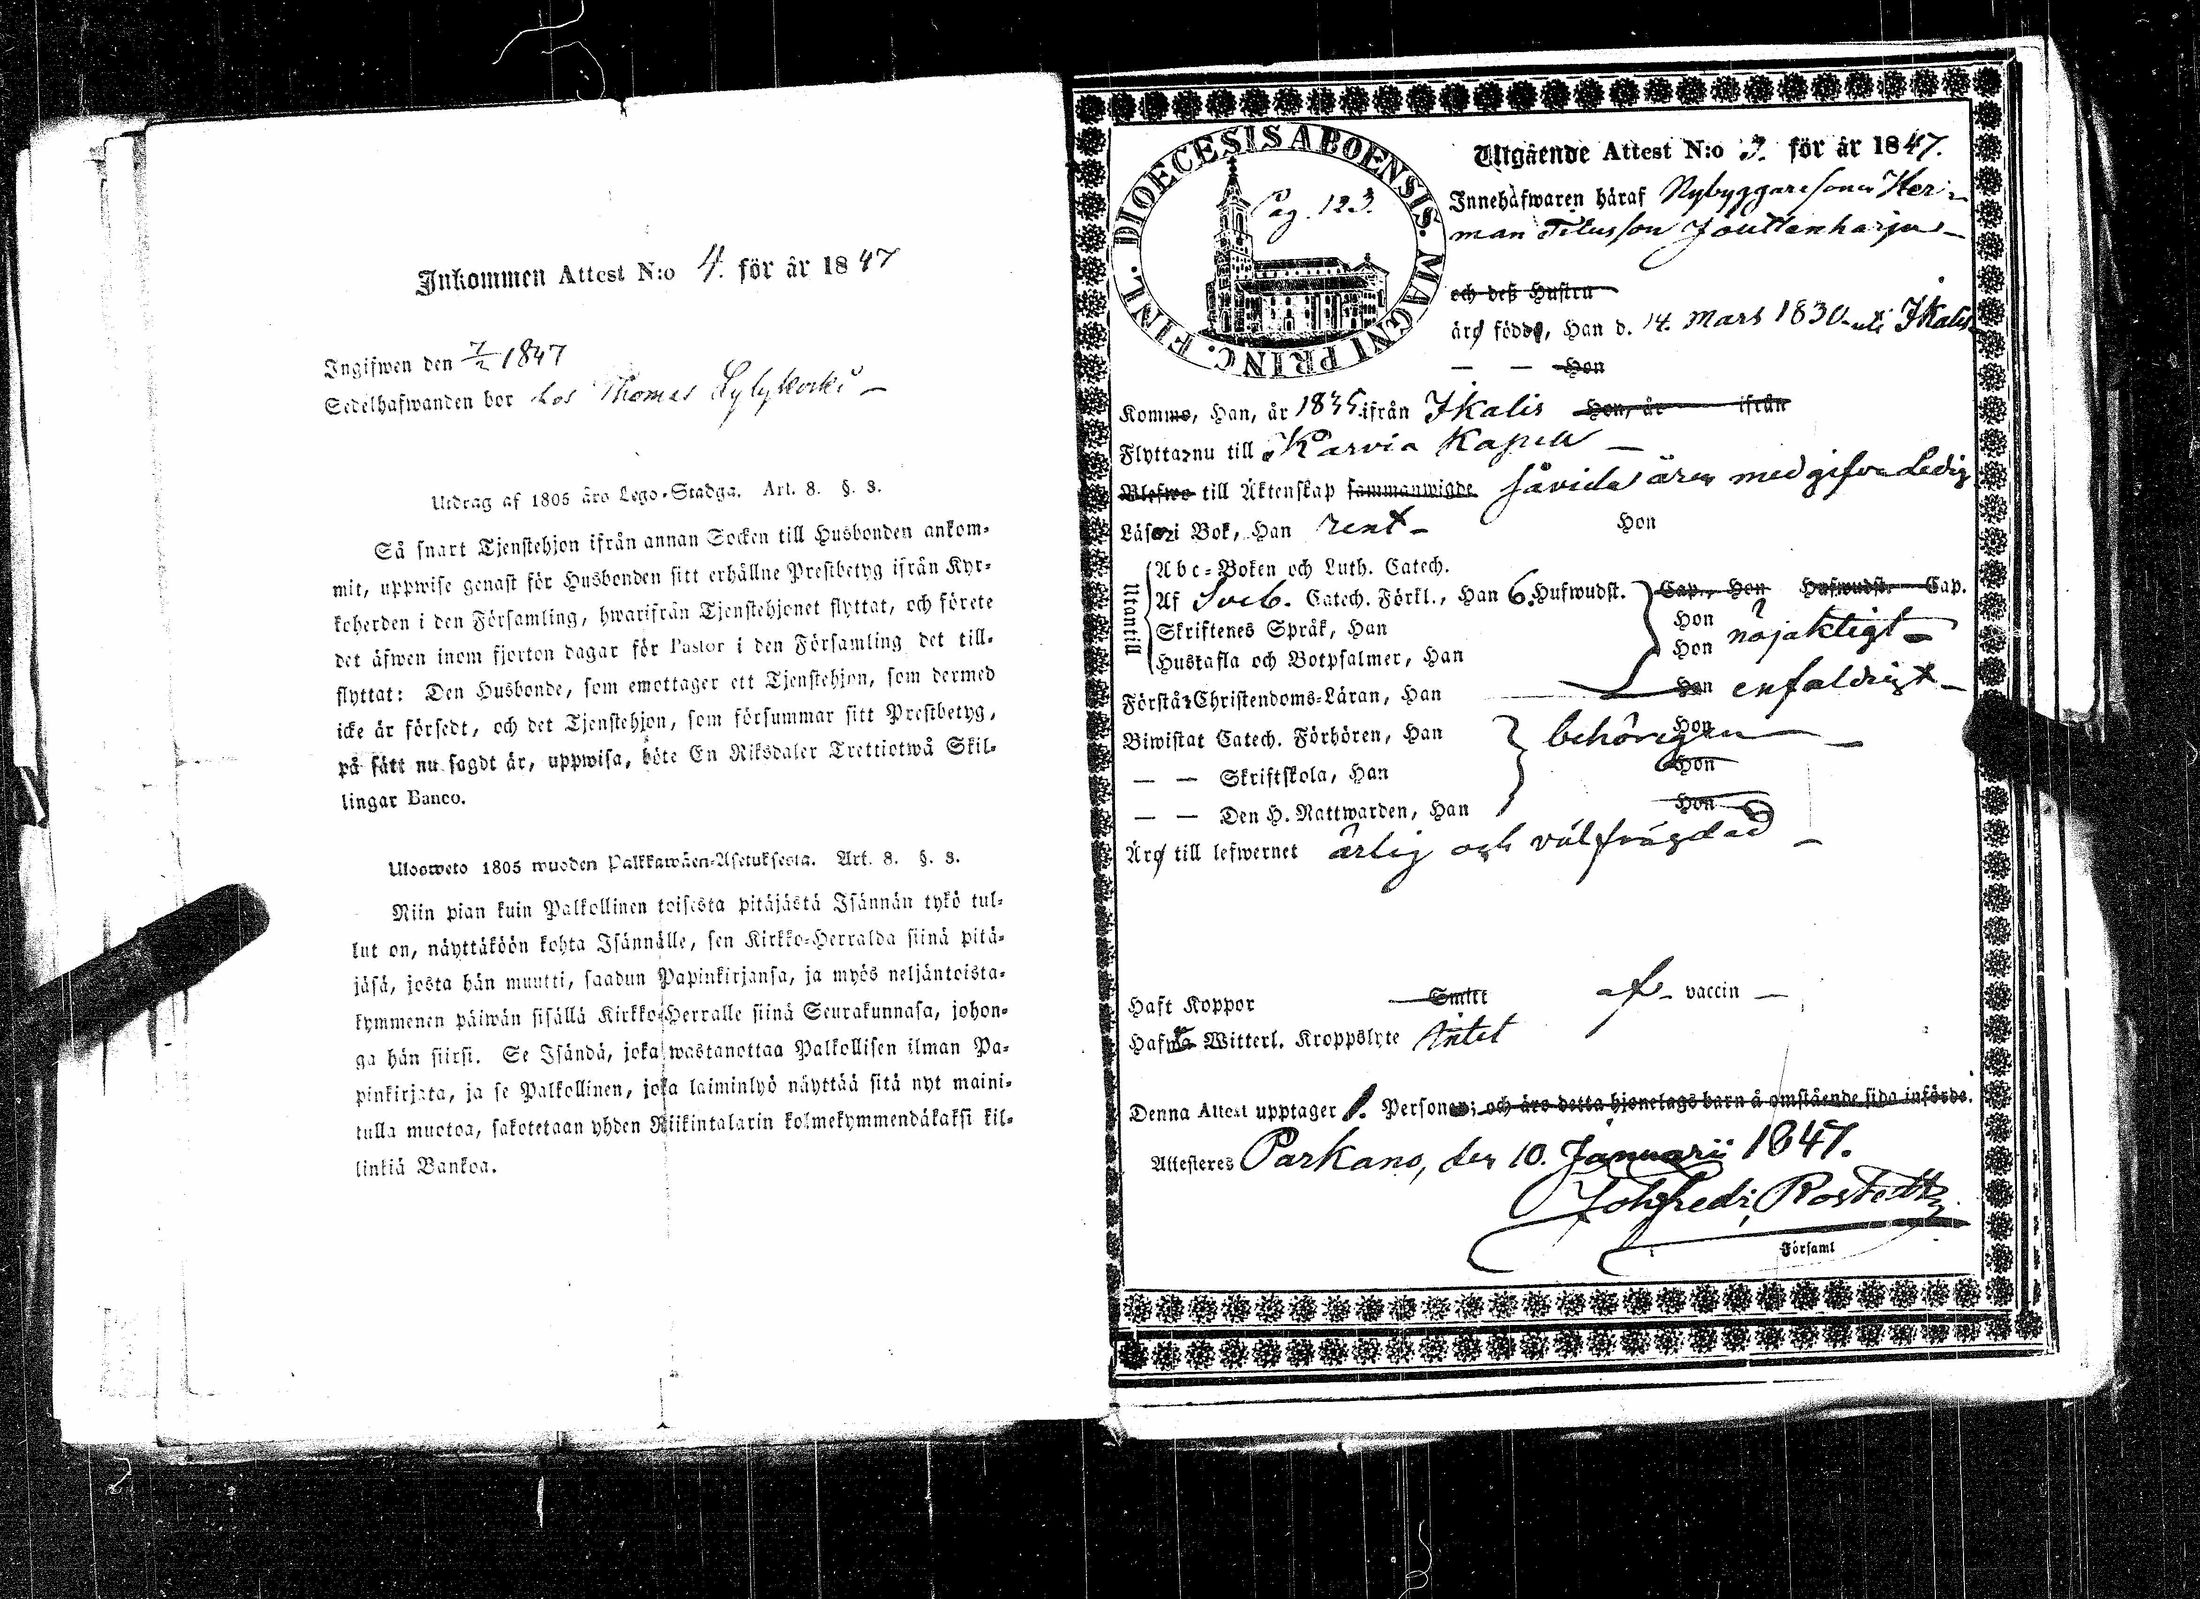 Inkommen Attest N:o 4. för år 1847
Ingifwen den 7/2 1847
Sedelhafwanden bor hos Thomas Lylykoski
Utdrag af 1805 års Lego-Stadga. Art. 8. §. 3.
Så snart Tjenstehjon ifrån annan Socken till Husbonden ankom-
mit, uppwise genast för Husbonden sitt erhållne Prestbetyg ifrån Kyr-
koherden i den Församling, hwarifrån Tjenstehjonet flyttat, och förete
det äfwen inom fjorton dagar för Pastor i den Församling det till-
flyttat: Den Husbonde, som emottager ett Tjenstehjon, som dermed
icke är försedt, och det Tjenstehjon, som försummar sitt Prestbetyg,
på sätt nu sagdt är, uppwisa, böte En Riksdaler Trettiotwå Skil-
lingar Banco.
Ulosweto 1805 wuoden Palkkawäen-Asetuksesta. Art. 8. §. 3.
Niin pian kuin Palkollinen toisesta pitäjästä Isännän tykö tul-
lut on, näyttäköön kohta Isännälle, sen Kirkko-Herralda siinä pitä-
jäsä, josta hän muutti, saadun Papinkirjansa, ja myös neljäntoista-
kymmenen päiwän sisällä Kirkko-Herralle siinä Seurakunnasa, johon-
ga hän siirsi. Se Isändä, joka wastanottaa Palkollisen ilman Pa-
pinkirjata, ja se Palkollinen, joka laiminlyö näyttää sitä nyt maini-
tulla muotoa, sakotetaan yhden Riikintalarin kolmekymmendäkaksi kil-
linkiä Bankoa.
DIOECESIS ABOENSIS. MAGNI PRINC. FINL.
Pag. 123.
Utgående Attest N:o 3. för år 1847.
Innehafwaren häraf Nybyggaresonen Her-
man Titusson Jouttenharju
och deß Hustru
äro födde, Han d. 14. Mars 1830 uti Ikalis
— — Hon
Kommo, Han, år 1835 ifrån Ikalis Hon, år ifrån
Flyttar nu till Karvia Kapell
Blefwo till Äktenskap sammanwigde såvida åren medgifva Ledig
Läser i Bok, Han rent Hon
Utantill
Abc-Boken och Luth. Catech.
Af Sveb. Catech. Förkl., Han 6. Hufwudst. Cap., Hon Hufwudst. Cap.
Skriftenes Språk, Han Hon
Hustafla och Botpsalmer, Han Hon nöjaktigt
Förstår Christendoms-Läran, Han Hon enfaldigt
Biwistat Catech. Förhören, Han Hon behörigen
— — Skriftskola, Han Hon
— — Den H. Nattwarden, Han Hon
Äro till lefwernet ärlig och välfrägdad
Haft Koppor Smitt af vaccin
Hafwa Witterl. Kroppslyte Intet
Denna Attest upptager 1. Personer; och äro detta hjonelags barn å omstående sida införde.
Attesteres Parkano, den 10. Januarii 1847.
Joh. Fredr. Rostedt
Församl